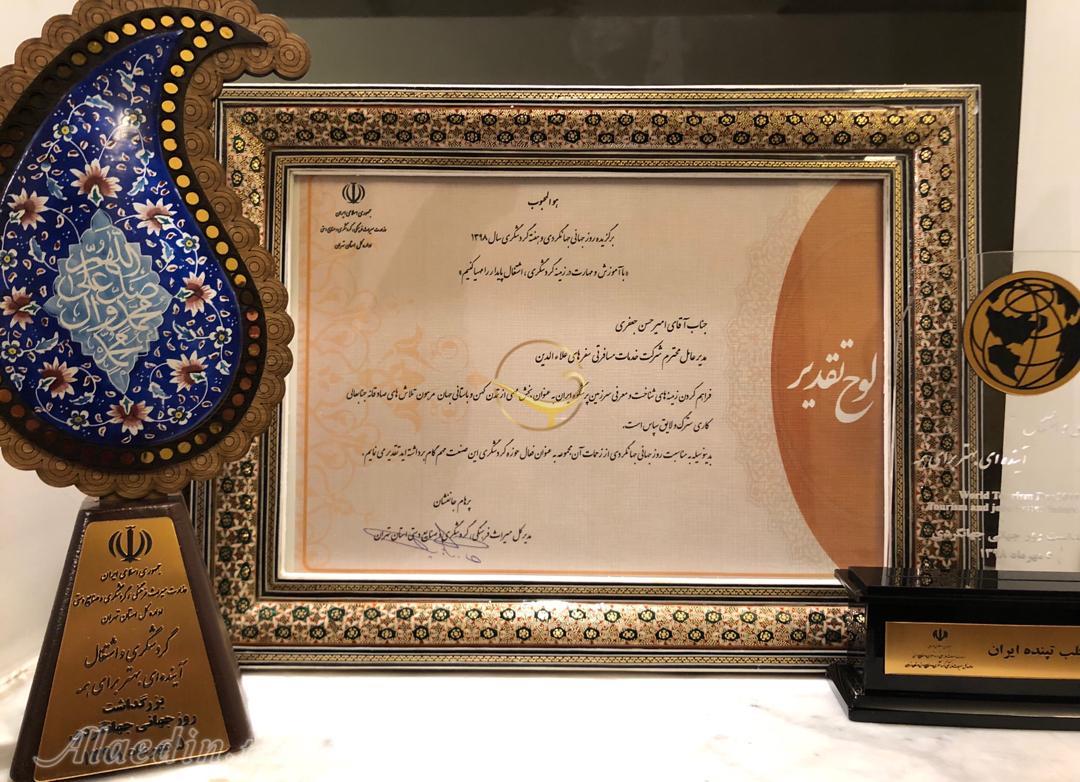 جمهوری اسلامی ایران
وزارت میراث فرهنگی، گردشگری و صنایع دستی
اداره کل استان تهران
هو المحبوب
برگزیده روز جهانی جهانگردی و هفته گردشگری سال ۱۳۹۸
«با آموزش و مهارت در زمینه گردشگری، اشتغال پایدار را مهیا کنیم»
جناب آقای امیرحسن جعفری
مدیرعامل محترم شرکت خدمات مسافرتی سفرهای علاءالدین
فراهم کردن زمینه‌های شناخت و معرفی سرزمین پرشکوه ایران به عنوان بخش مهمی از تمدن کهن و باستانی جهان مرهون تلاش های صادقانه جنابعالی
کاری سترگ و لایق سپاس است.
بدینوسیله به مناسبت روز جهانی جهانگردی از زحمات آن مجموعه به عنوان فعال حوزه گردشگری این صنعت مهم گام برداشته اید تقدیر می نمایم.
پرهام جانفشان
مدیرکل میراث فرهنگی، گردشگری و صنایع دستی استان تهران
لوح تقدیر
اللهم
صل علی
محمد و آل
محمد
جمهوری اسلامی ایران
وزارت میراث فرهنگی، گردشگری و صنایع دستی
اداره کل استان تهران
گردشگری و اشتغال
آینده‌ای بهتر برای همه
بزرگداشت
روز جهانی جهانگردی
۱۳۹۸
آینده ای بهتر برای همه
World Tourism
Tourism and
روز جهانی جهانگردی
۵ مهرماه ۱۳۹۸
تپنده ایران
Alaedin